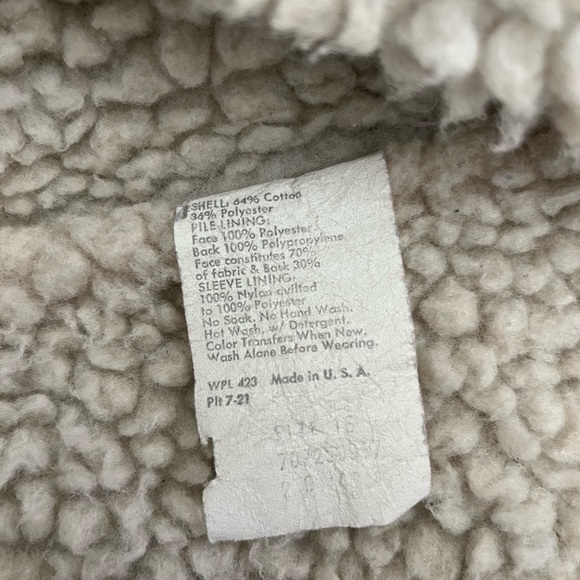 SHELL: 64% Cotton
36% Polyester
PILE LINING:
Face 100% Polyester
Back 100% Polypropylene
Face constitutes 70%
of fabric & Back 30%
SLEEVE LINING:
100% Nylon quilted
to 100% Polyester
No Soak, No Hand Wash,
Hot Wash, w/ Detergent.
Color Transfers When New,
Wash Alone Before Wearing.
WPL 423 Made in U. S. A.
Plt 7-21
SIZE 16